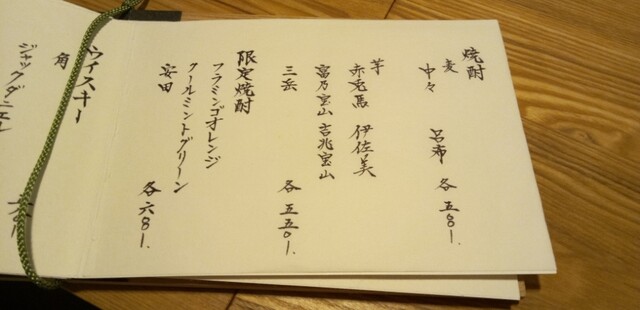 焼酎
麦
中々 呂布 各五〇〇一.
芋
赤兎馬 伊佐美
富乃宝山 吉兆宝山
三岳 各五五〇一.
限定焼酎
フラミンゴオレンジ
クールミントグリーン
安田 各六〇〇一.
ウイスキー
角
ジャックダニエル